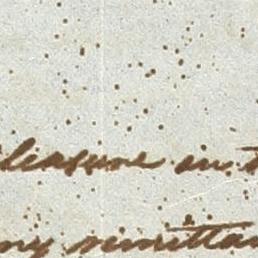 leasure in t
my remittan